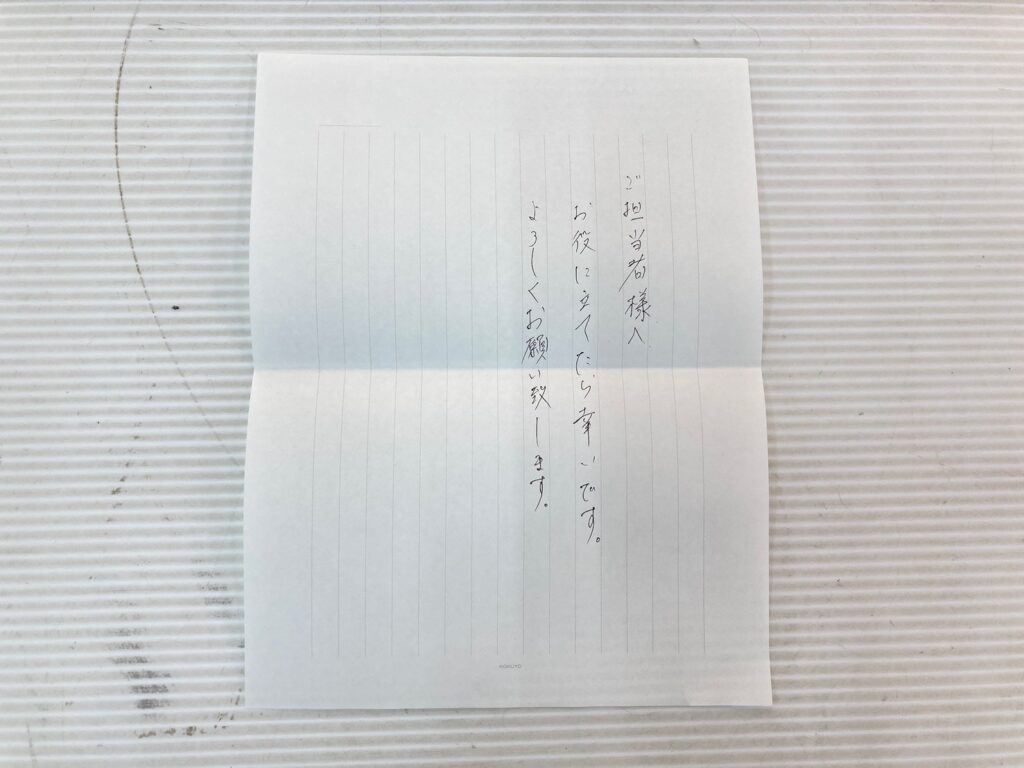 ご担当者様へ
お役に立てたら幸いです。
よろしくお願い致します。
KOKUYO